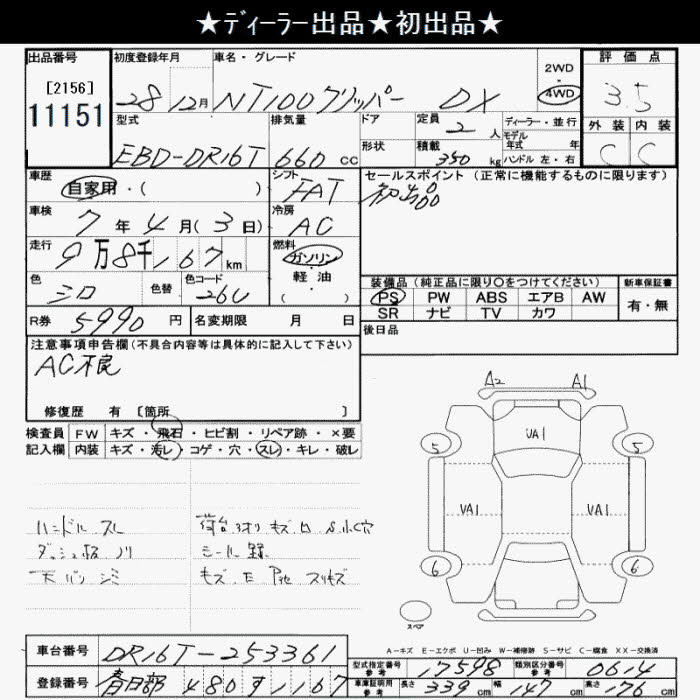 ★ディーラー出品★初出品★
出品番号
[2156]
11151
初度登録年月
28 12月
車名・グレード
NT100クリッパー DX
2WD
4WD
評価点
3.5
外装 内装
C C
型式
EBD-DR16T
排気量
660 cc
ドア
形状
定員
2 人
積載
350 kg
ディーラー・並行
モデル
年式 年
ハンドル 左・右
車歴
自家用・( )
シフト
FAT
セールスポイント (正常に機能するものに限ります)
初出品
車検
7年4月(3日)
冷房
AC
走行
9万8千167km
燃料
ガソリン・
軽油
( )
色
シロ
色替
色コード
26U
装備品(純正品に限り〇をつけてください)
PS PW ABS エアB AW
SR ナビ TV カワ
新車保証書
有・無
R券 5990円
名変期限 月 日
後日品
注意事項申告欄(不具合内容等は具体的に記入して下さい)
AC不良
修復歴 有 [箇所 ]
検査員
記入欄
FW キズ・飛石・ヒビ割・リペア跡・×要
内装 キズ・汚レ・コゲ・穴・スレ・キレ・破レ
ハンドル スレ
天バリ シミ
A2 A1
VA1
5 5
VA1 VA1
6 6
スペア
A-キズ E-エクボ U-凹み W-補修跡 S-サビ C-腐食 XX-交換済
車台番号
DR16T-253361
登録番号
春日部 480す1167
型式指定番号
参考
17598
類別区分番号
参考
0614
車庫証明用
参考
長さ 339cm 幅 147cm 高さ 176cm